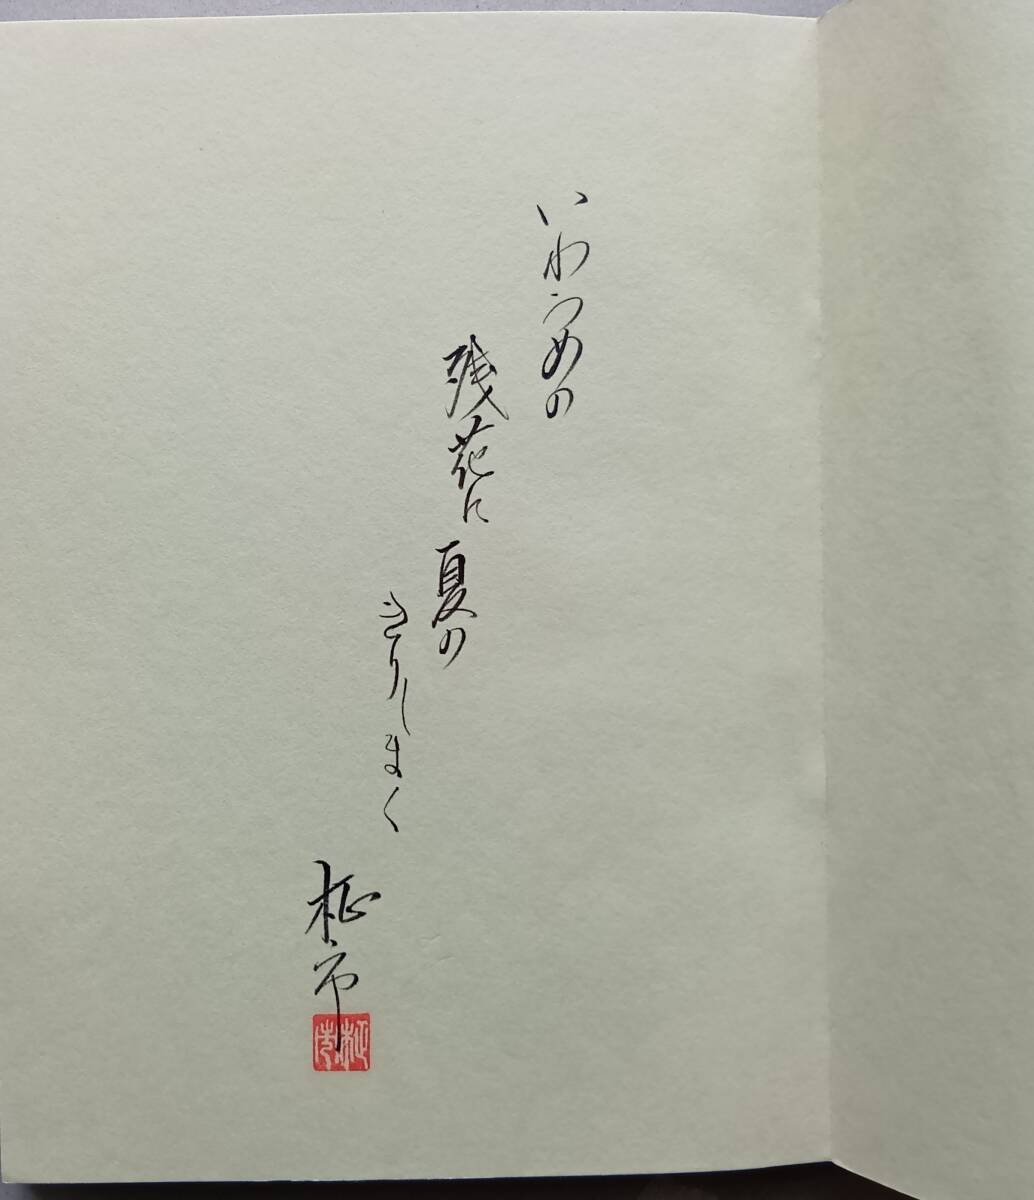 いわうめの
残花に夏の
きりしまく
柾市
柾市